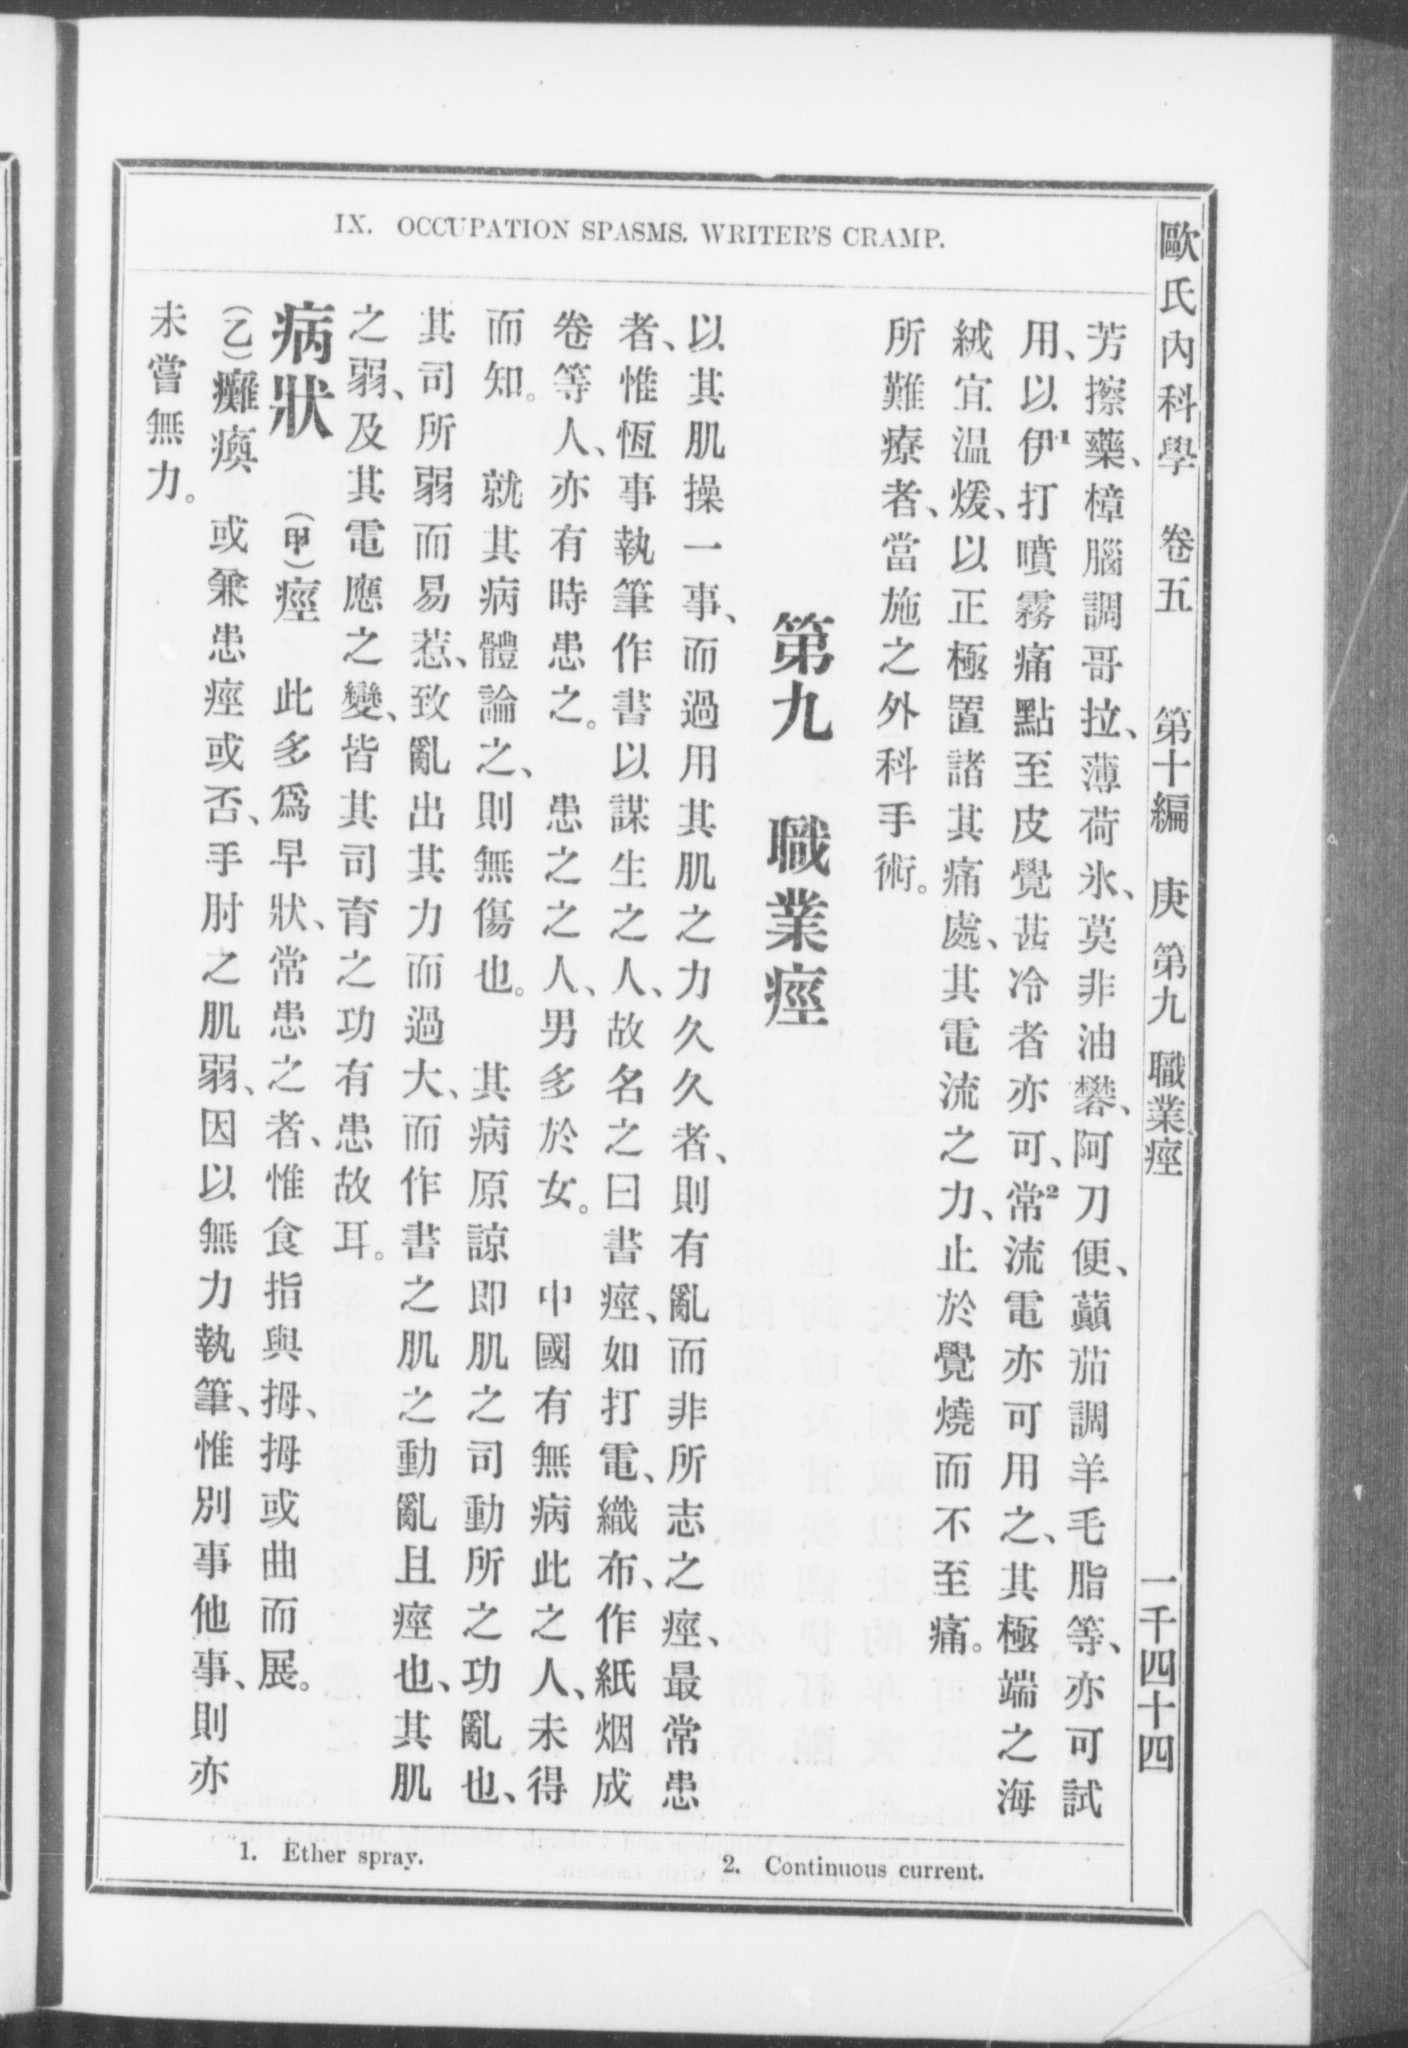 IX. OCCUPATION SPASMS. WRITER'S CRAMP.
歐氏內科學 卷五 第十編 庚 第九 職業痙 一千四十四
芳擦藥、樟腦調哥拉、薄荷氷、莫非油礬、阿刀便、蘤茄調羊毛脂等、亦可試
用、以伊¹打噴霧痛點至皮覺甚冷者亦可、常²流電亦可用之、其極端之海
絨宜温煖、以正極置諸其痛處、其電流之力、止於覺燒而不至痛。
所難療者、當施之外科手術。
第九 職業痙
以其肌操一事、而過用其肌之力久久者、則有亂而非所志之痙、最常患
者、惟恆事執筆作書以謀生之人、故名之曰書痙、如打電、織布、作紙烟成
卷等人、亦有時患之。 患之之人、男多於女。 中國有無病此之人、未得
而知。 就其病體論之、則無傷也。 其病原諒即肌之司動所之功亂也、
其司所弱而易惹、致亂出其力而過大、而作書之肌之動亂且痙也、其肌
之弱、及其電應之變、皆其司育之功有患故耳。
病狀 （甲）痙 此多爲早狀、常患之者、惟食指與拇、拇或曲而展。
（乙）癱瘓 或兼患痙或否、手肘之肌弱、因以無力執筆、惟別事他事、則亦
未嘗無力。
1. Ether spray. 2. Continuous current.